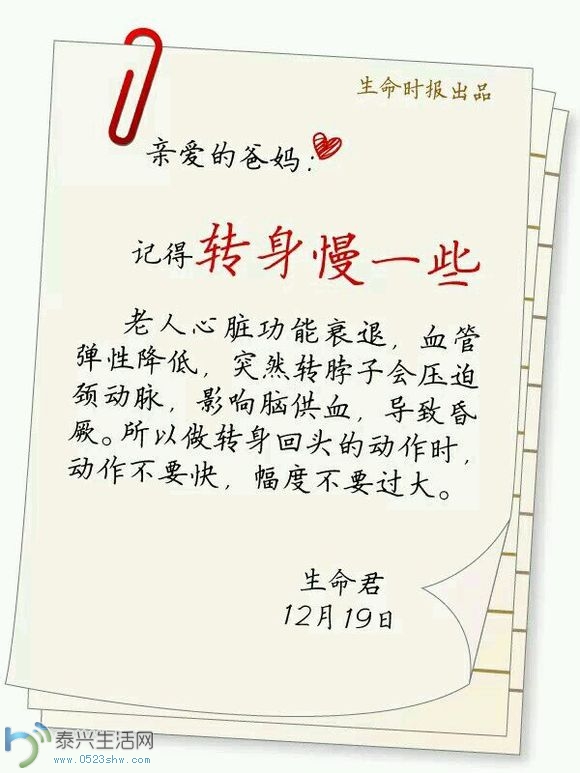 生命时报出品
亲爱的爸妈：
记得转身慢一些
老人心脏功能衰退，血管
弹性降低，突然转脖子会压迫
颈动脉，影响脑供血，导致昏
厥。所以做转身回头的动作时，
动作不要快，幅度不要过大。
生命君
12月19日
泰兴生活网
www.0523shw.com